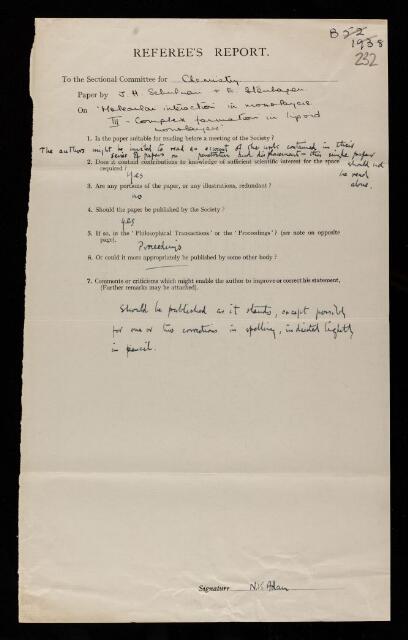 B 22
1938
232
REFEREE'S REPORT.
To the Sectional Committee for Chemistry
Paper by J. H. Schulman + E. Stenhagen
On 'Molecular interaction in monolayers
III - Complex formation in lipoid
monolayers'
1. Is the paper suitable for reading before a meeting of the Society?
The authors might be invited to read an account of the work contained in their
series of papers on penetration and displacement - this single paper
should not
be read
alone.
2. Does it contain contributions to knowledge of sufficient scientific interest for the space
required?
Yes
3. Are any portions of the paper, or any illustrations, redundant?
no
4. Should the paper be published by the Society?
yes
5. If so, in the 'Philosophical Transactions' or the 'Proceedings'? (see note on opposite
page).
Proceedings
6. Or could it more appropriately be published by some other body?
7. Comments or criticisms which might enable the author to improve or correct his statement,
(Further remarks may be attached).
Should be published as it stands, except possibly
for one or two corrections in spelling, indicated lightly
in pencil.
Signature N.K. Adam